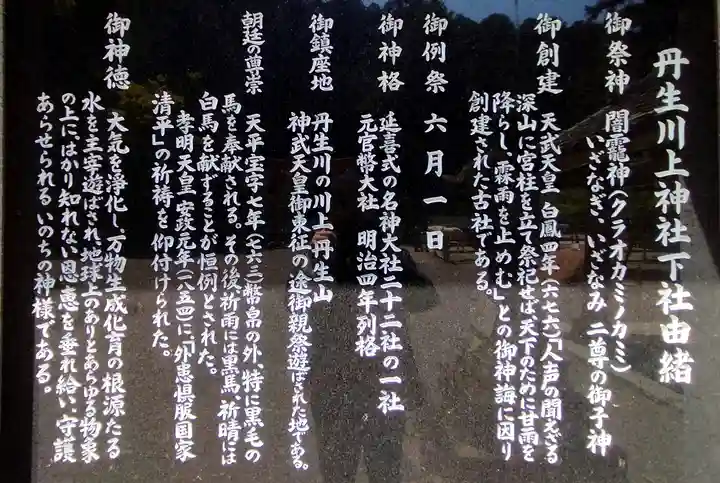 丹生川上神社下社由緒
御祭神 闇龗神(クラオカミノカミ)
いざなぎ、いざなみ 二尊の御子神
御創建 天武天皇 白鳳四年(六七六)「人声の聞えざる
深山に宮柱を立て祭祀せば、天下のために甘雨を
降らし、霖雨を止めむ」との御神誨に因り
創建された古社である。
御例祭 六月一日
御神格 延喜式の名神大社二十二社の一社
元官幣大社 明治四年列格
御鎮座地 丹生川の川上 丹生山
神武天皇御東征の途御親祭遊ばされた地である。
朝廷の尊崇 天平宝字七年(七六三)幣帛の外、特に黒毛の
馬を奉献される。その後祈雨には黒馬、祈晴には
白馬を献ずることが恒例とされた。
孝明天皇 安政元年(八五四)に、「外患惧服国家
清平」の祈祷を仰付けられた。
御神徳 大気を浄化し、万物生成化育の根源たる
水を主宰遊ばされ、地球上のありとあらゆる物象
の上にはかり知れない恩恵を垂れ給い、守護
あらせられる いのちの神様である。